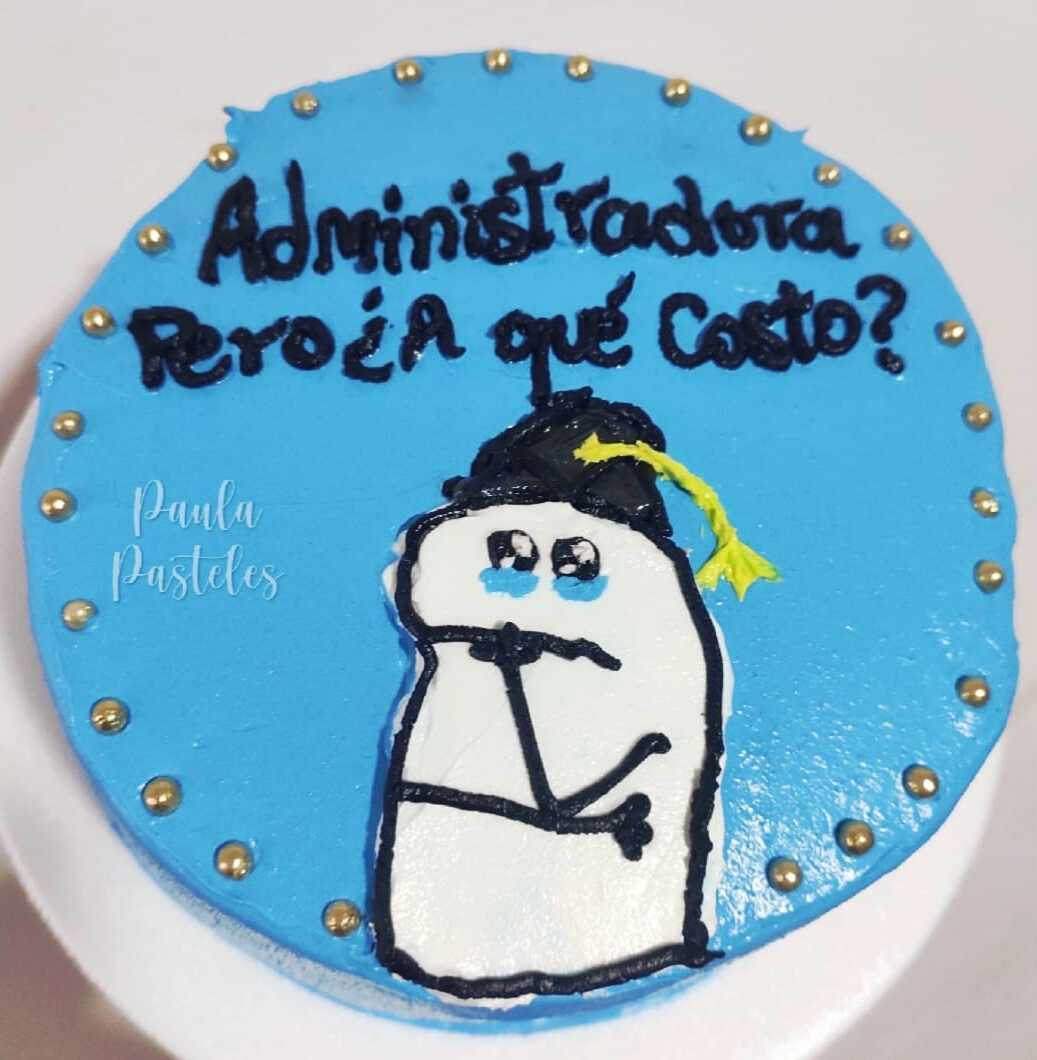 Administradora
Pero ¿A qué Costo?
Paula
Pasteles